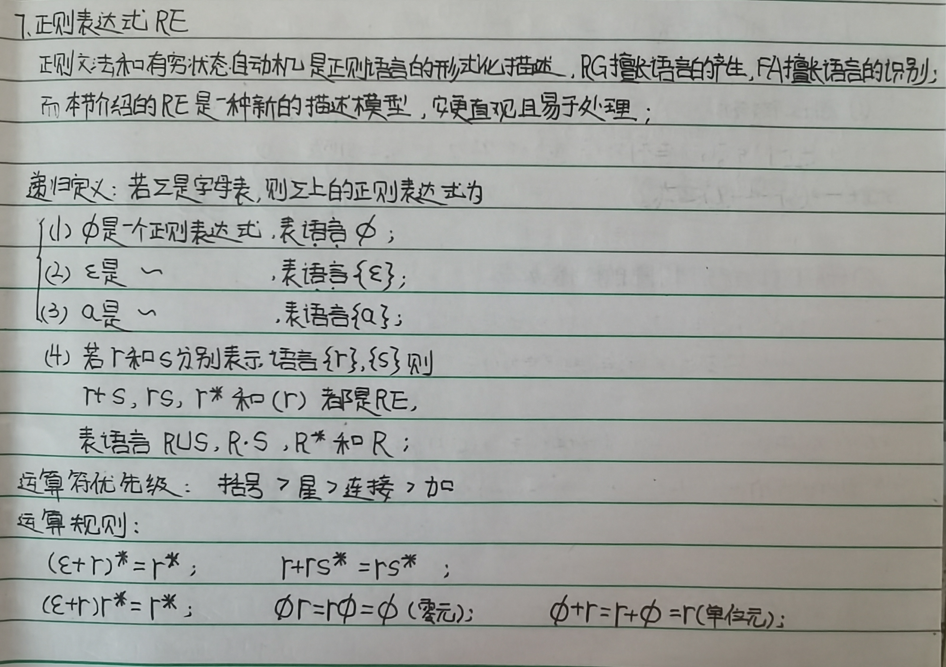 7、正则表达式 RE
正则文法和有穷状态自动机是正则语言的形式化描述,RG擅长语言的产生,FA擅长语言的识别;
而本节介绍的RE是一种新的描述模型,它更直观且易于处理;
递归定义:若Σ是字母表,则Σ上的正则表达式为
(1) φ是一个正则表达式,表语言 φ;
(2) ε是 ~ ,表语言{ε};
(3) a是 ~ ,表语言{a};
(4) 若r和s分别表示语言{r},{s}则
r+s, rs, r* 和(r) 都是RE,
表语言 R∪S, R·S, R* 和 R;
运算符优先级: 括号>星>连接>加
运算规则:
(ε+r)*=r*; r+rs*=rs*;
(ε+r)r*=r*; φr=rφ=φ(零元); φ+r=r+φ=r(单位元);